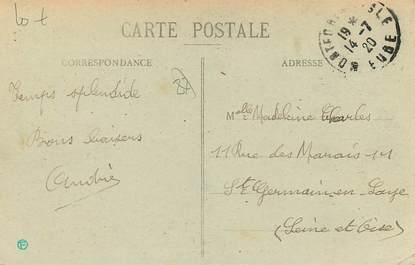 CARTE POSTALE
CORRESPONDANCE
ADRESSE
19
14-7
20
EURE
87
Temps splendide
Bons baisers
Melle Madeleine Charles
11 Rue des Marais 11
St Germain en Laye
(Seine et Oise)